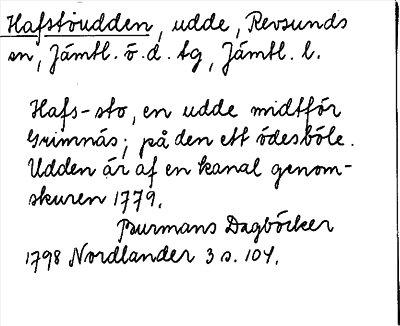 Hafstöudden, udde, Revsunds
sn, Jämtl. ö. d. tg, Jämtl. l.
Hafs-sto, en udde midtför
Grimnäs; på den ett ödesböle.
Udden är af en kanal genom-
skuren 1779.
Burmans Dagböcker
1798 Nordlander 3 s. 104.